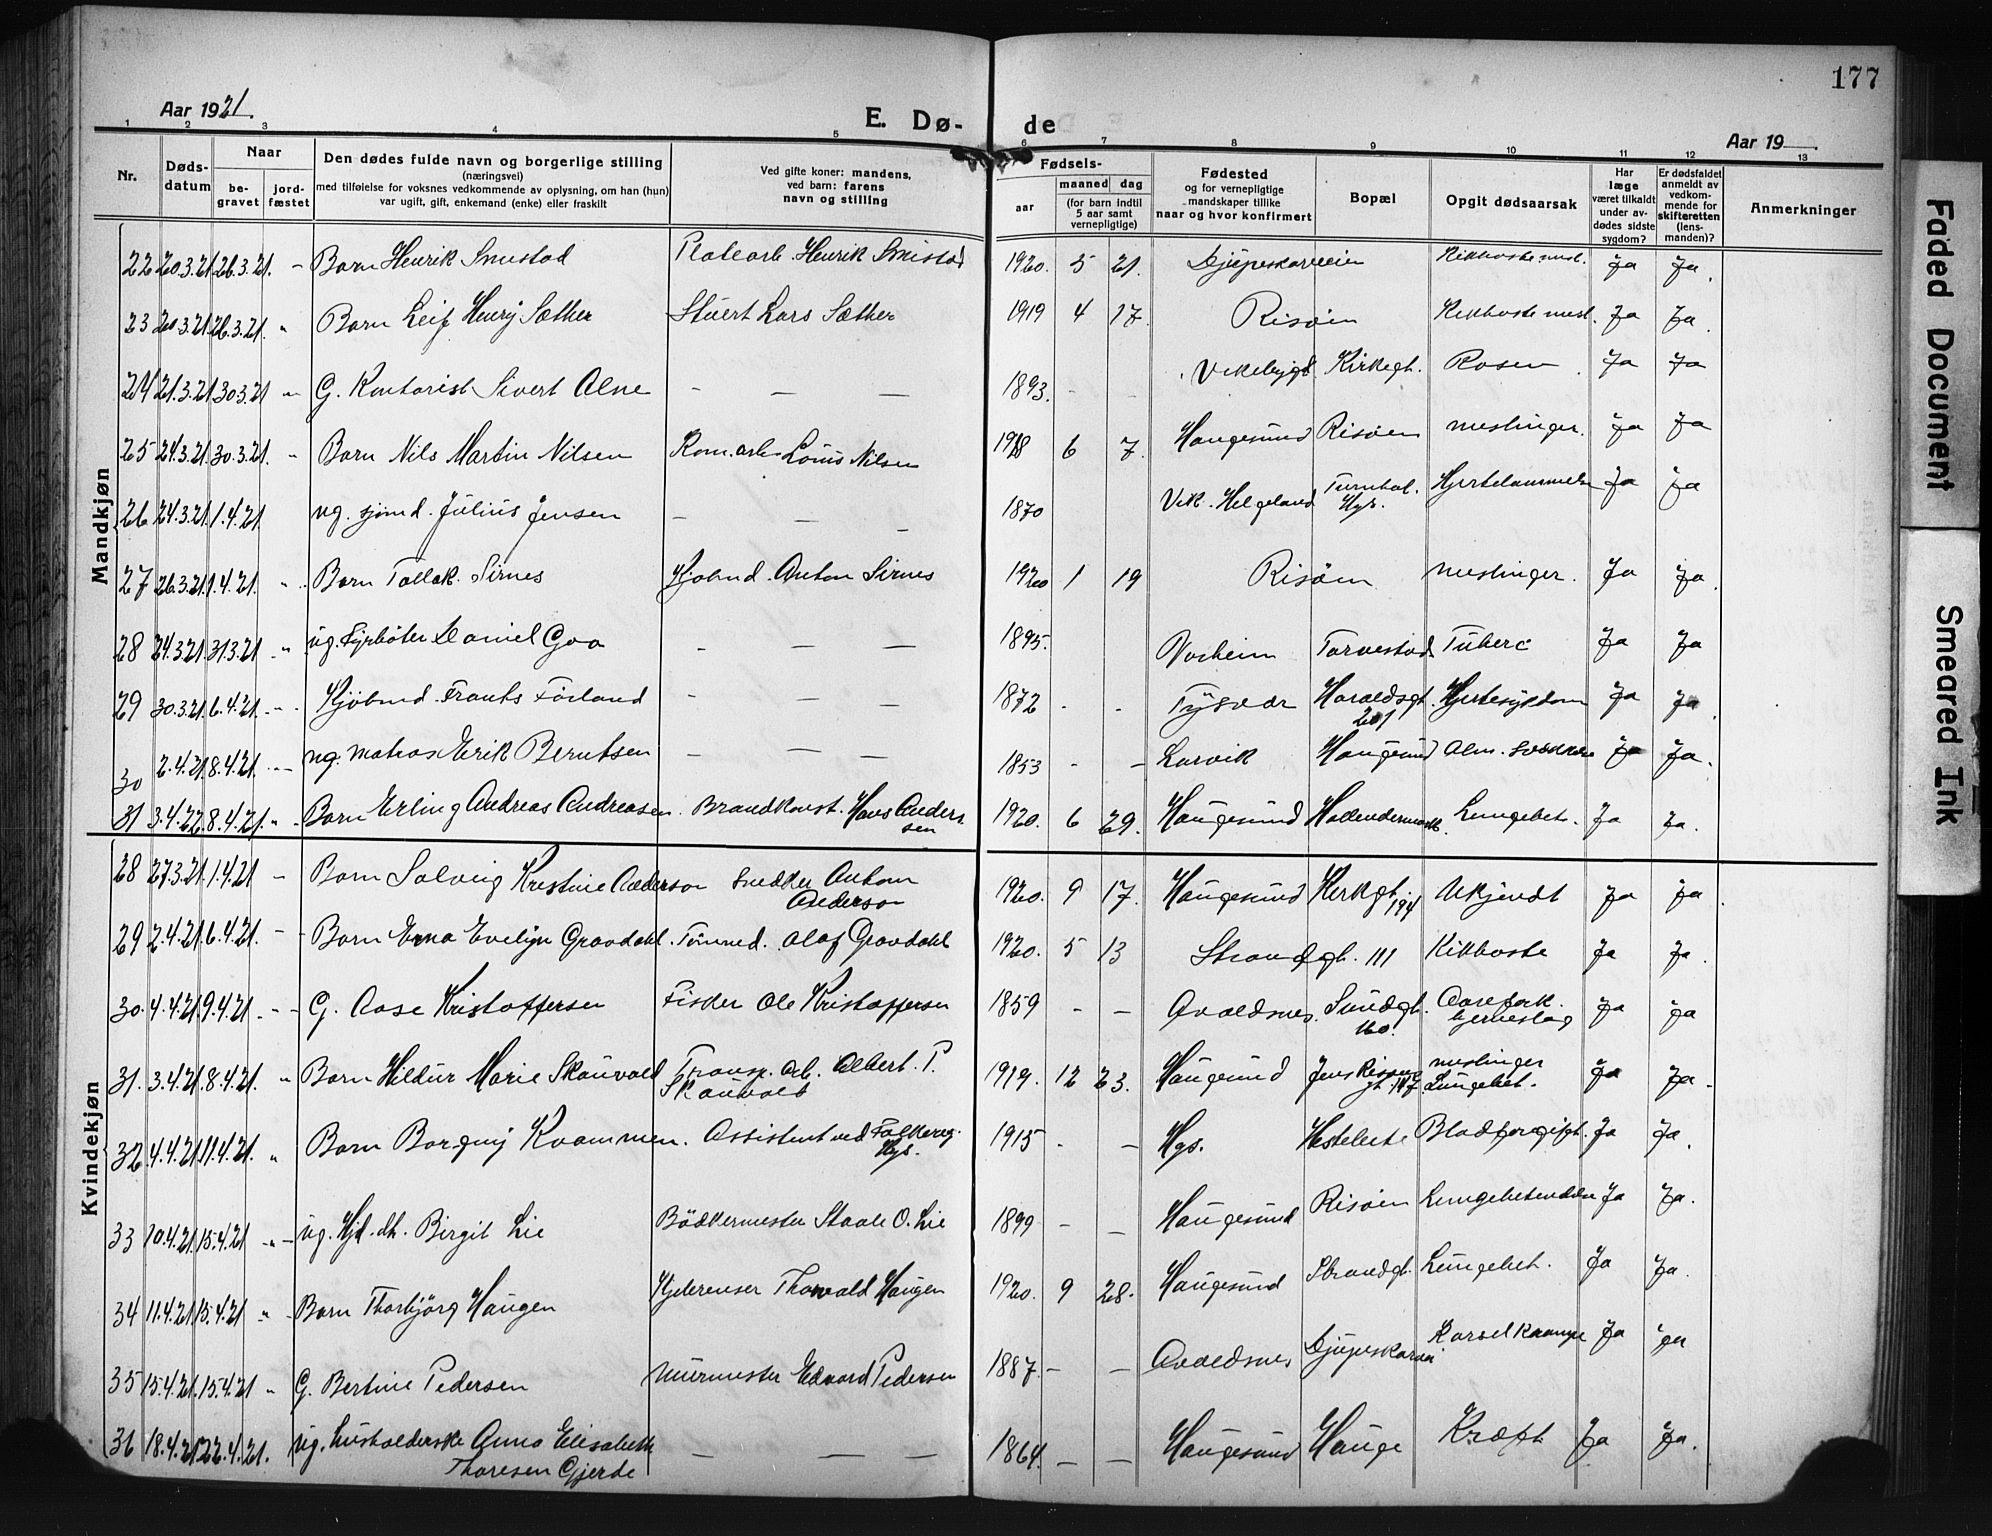 177
Aar 1921.
E. Dø-
de
Aar 19
1 2 3 4 5 6 7 8 9 10 11 12 13
Nr.
Døds-
datum
Naar
be-
gravet
jord-
fæstet
Den dødes fulde navn og borgerlige stilling
(næringsvei)
med tilføielse for voksnes vedkommende av oplysning, om han (hun)
var ugift, gift, enkemand (enke) eller fraskilt
Ved gifte koner: mandens,
ved barn: farens
navn og stilling
Fødsels-
aar
maaned dag
(for barn indtil
5 aar samt
vernepligtige)
Fødested
og for vernepligtige
mandskaper tillike
naar og hvor konfirmert
Bopæl
Opgit dødsaarsak
Har
læge
været tilkaldt
under av-
dødes sidste
sygdom?
Er dødsfaldet
anmeldt av
vedkom-
mende for
skifteretten
(lens-
manden)?
Anmerkninger
Mandkjøn
22 20.3.21 26.3.21. " Barn Henrik Smistad Platearb. Henrik Smistad 1920. 5 21. Djupeskarveien Kikhoste Ja Ja.
23 20.3.21 26.3.21. " Barn Leif Henry Sæther Stuert Lars Sæther 1919 4 17. Risøien Kikhoste Ja Ja.
24 21.3.21 30.3.21 " G. Kontorist Sivert Alne — — 1893. - - Vikebygd Kirkegt. Rosen Ja Ja
25 24.3.21. 30.3.21. " Barn Nils Martin Nilsen Louis Nilsen 1918 6 7. Haugesund Risøen meslinger. Ja Ja
26 24.3.21. 1.4.21. ug. sjømd. Julius Jensen — — — 1870 Vik. Helgeland Hgs. Hjertelammelse Ja Ja
27 26.3.21. 1.4.21. " Barn Tollak Sirnes Kjøbmd. Anton Sirnes 1920 1 19 Risøen meslinger. Ja Ja.
28 24.3.21 31.3.21 " ug. Fyrbøter Daniel Goa — — — 1895. Torvestad Tuberc Ja Ja
29 30.3.21. 6.4.21. " Kjøbmd. Frants Førland — — — 1872 - - Tysvær Haraldsgt.
201 Hjertesykdom Ja Ja.
30 2.4.21. 8.4.21. — ug. matros Erik Berntsen — — — 1853 - — Larvik Haugesund Alm. svækkelse Ja Ja.
31 3.4.22. 8.4.21. " Barn Erling Andreas Andreasen. Brandkonst. Hans Anders-
sen 1920. 6 29. Haugesund Lungebet. Ja Ja.
Kvindekjøn
28 27.3.21. 1.4.21 — Barn Solveig Kristine Anderson Snedker Anton
Anderson 1920. 9 17. Haugesund Kirkegt.
194 Ukjendt Ja Ja.
29 2.4.21. 6.4.21. — Barn Erna Evelyn Gravdahl. Tømmed. Olaf Gravdahl 1920. 5 13 Strandgt. 111 Kikhoste Ja Ja.
30. 4.4.21. 9.4.21 — G. Aase Kristoffersen Fisker Ole Kristoffersen 1859 - — Avaldsnes. Sundgt.
160.
hjerneslag Ja Ja
31. 3.4.21. 8.4.21. " Barn Hildur Marie Skauvold Transp. arb. Albert. P.
Skauvold 1919. 12 23. Haugesund
gt. 147 meslinger
Lungebet. Ja Ja.
32 4.4.21. 11.4.21. " Barn Borgny Kvammen. Assistent ved Folkereg.
Hgs. 1915 - — Hgs. Blodforgift. Ja Ja.
33 10.4.21. 15.4.21 " ug. Hjd. dt. Birgit Lie Bødkermester Staale O. Lie 1899 — — Haugesund Risøen Lungebetendelse Ja Ja.
34 11.4.21. 15.4.21 " Barn Thorbjørg Haugen Thorvald Haugen 1920. 9 28. Haugesund Strandgt. Lungebet. Ja Ja.
35 15.4.21. 15.4.21 " G. Bertine Pedersen Murmester Edvard Pedersen 1887. — — Avaldsnes Djupeskarvei Barselkrampe Ja Ja
36 18.4.21 22.4.21. ug. husholderske Anna Elisabeth
Thoresen Gjerde — — — 1864. — — Haugesund Hauge Kræft Ja Ja.
Faded Document
Smeared Ink